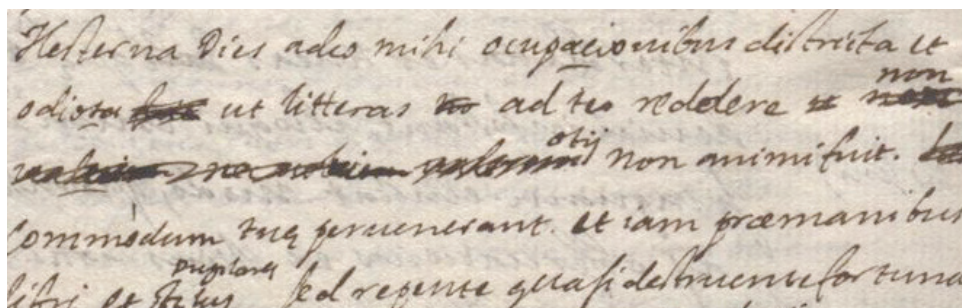 Hesterna Dies adeo mihi ocupacionibus districta et
odiosa ut litteras ad te reddere non
otij non animi fuit.
Commodum tuę peruenerant. et iam præmanibus
libri et stilus pugilares sed repente quasi destruente fortuna